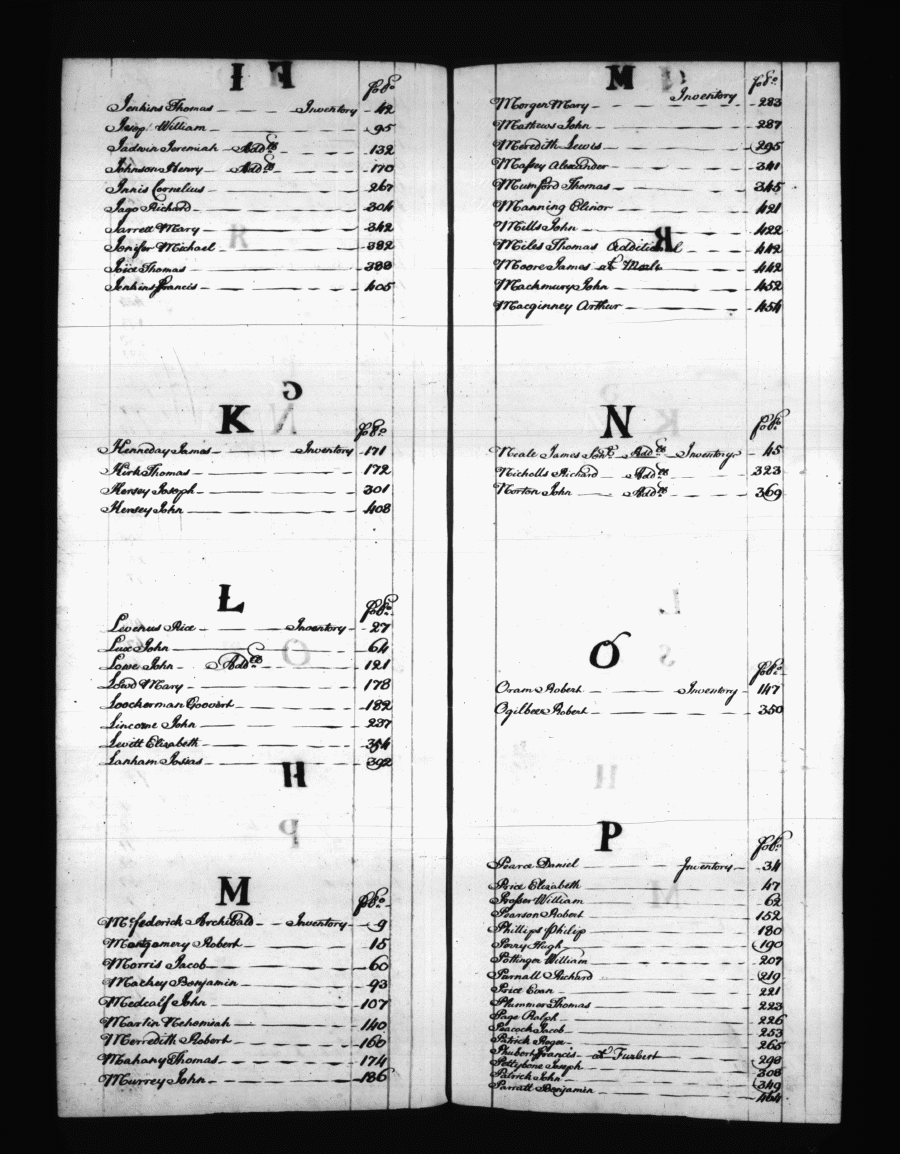 I
fol:o
Jenkins Thomas Inventory 42
Jesop William 95
Jadwin Jeremiah Add:es 132
Johnson Henry Add:es 170
Innis Cornelius 267
Jago Richard 304
Jarrett Mary 342
Jenifer Michael 382
Joice Thomas 388
Jenkins Francis 405
K
fol:o
Kenneday James Inventory 171
Kirk Thomas 172
Kersey Joseph 301
Kersey John 408
L
fol:o
Levenus Rice Inventory 27
Lux John 64
Lowe John Add:es 121
Lowd Mary 178
Loockerman Goovert 182
Lincorne John 237
Levett Elizabeth 354
Lanham Josias 392
M
fol:o
Mc:federick Archibald Inventory 9
Montgomery Robert 15
Morris Jacob 60
Mackey Benjamin 93
Medcalf John 107
Martin Nehemiah 140
Merredith Robert 160
Mahany Thomas 174
Murrey John 186
M
fol:o
Morgen Mary Inventory 283
Mathews John 287
Meredith Lewis 295
Massey Alexander 341
Mumford Thomas 345
Manning Elinor 421
Mills John 422
Miles Thomas Additional 442
Moore James at Meals 442
Mackmury John 452
Macginney Arthur 454
N
fol:o
Neale James Add:es Inventory 45
Nicholls Richard Add:es 323
Norton John Add:es 369
O
fol:o
Oram Robert Inventory 147
Ogilbee Robert 350
P
fol:o
Pearce Daniel Inventory 34
Price Elizabeth 47
Prosser William 62
Pearson Robert 152
Phillips Philip 180
Perry Hugh 190
Pottinger William 207
Parnall Richard 219
Price Evan 221
Plummer Thomas 223
Page Ralph 226
Peacock Jacob 253
Patrick Roger 265
Phubert Francis at Furbert 298
Pettybone Joseph 308
Patrick John 349
Parratt Benjamin 464